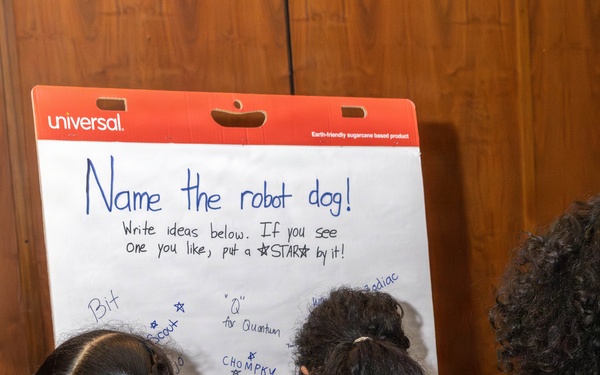 universal.
Earth-friendly sugarcane based product
Name the robot dog!
Write ideas below. If you see
one you like, put a ☆STAR☆ by it!
Bit
Scout
"Q"
for Quantum
Zodiac
CHOMPKY